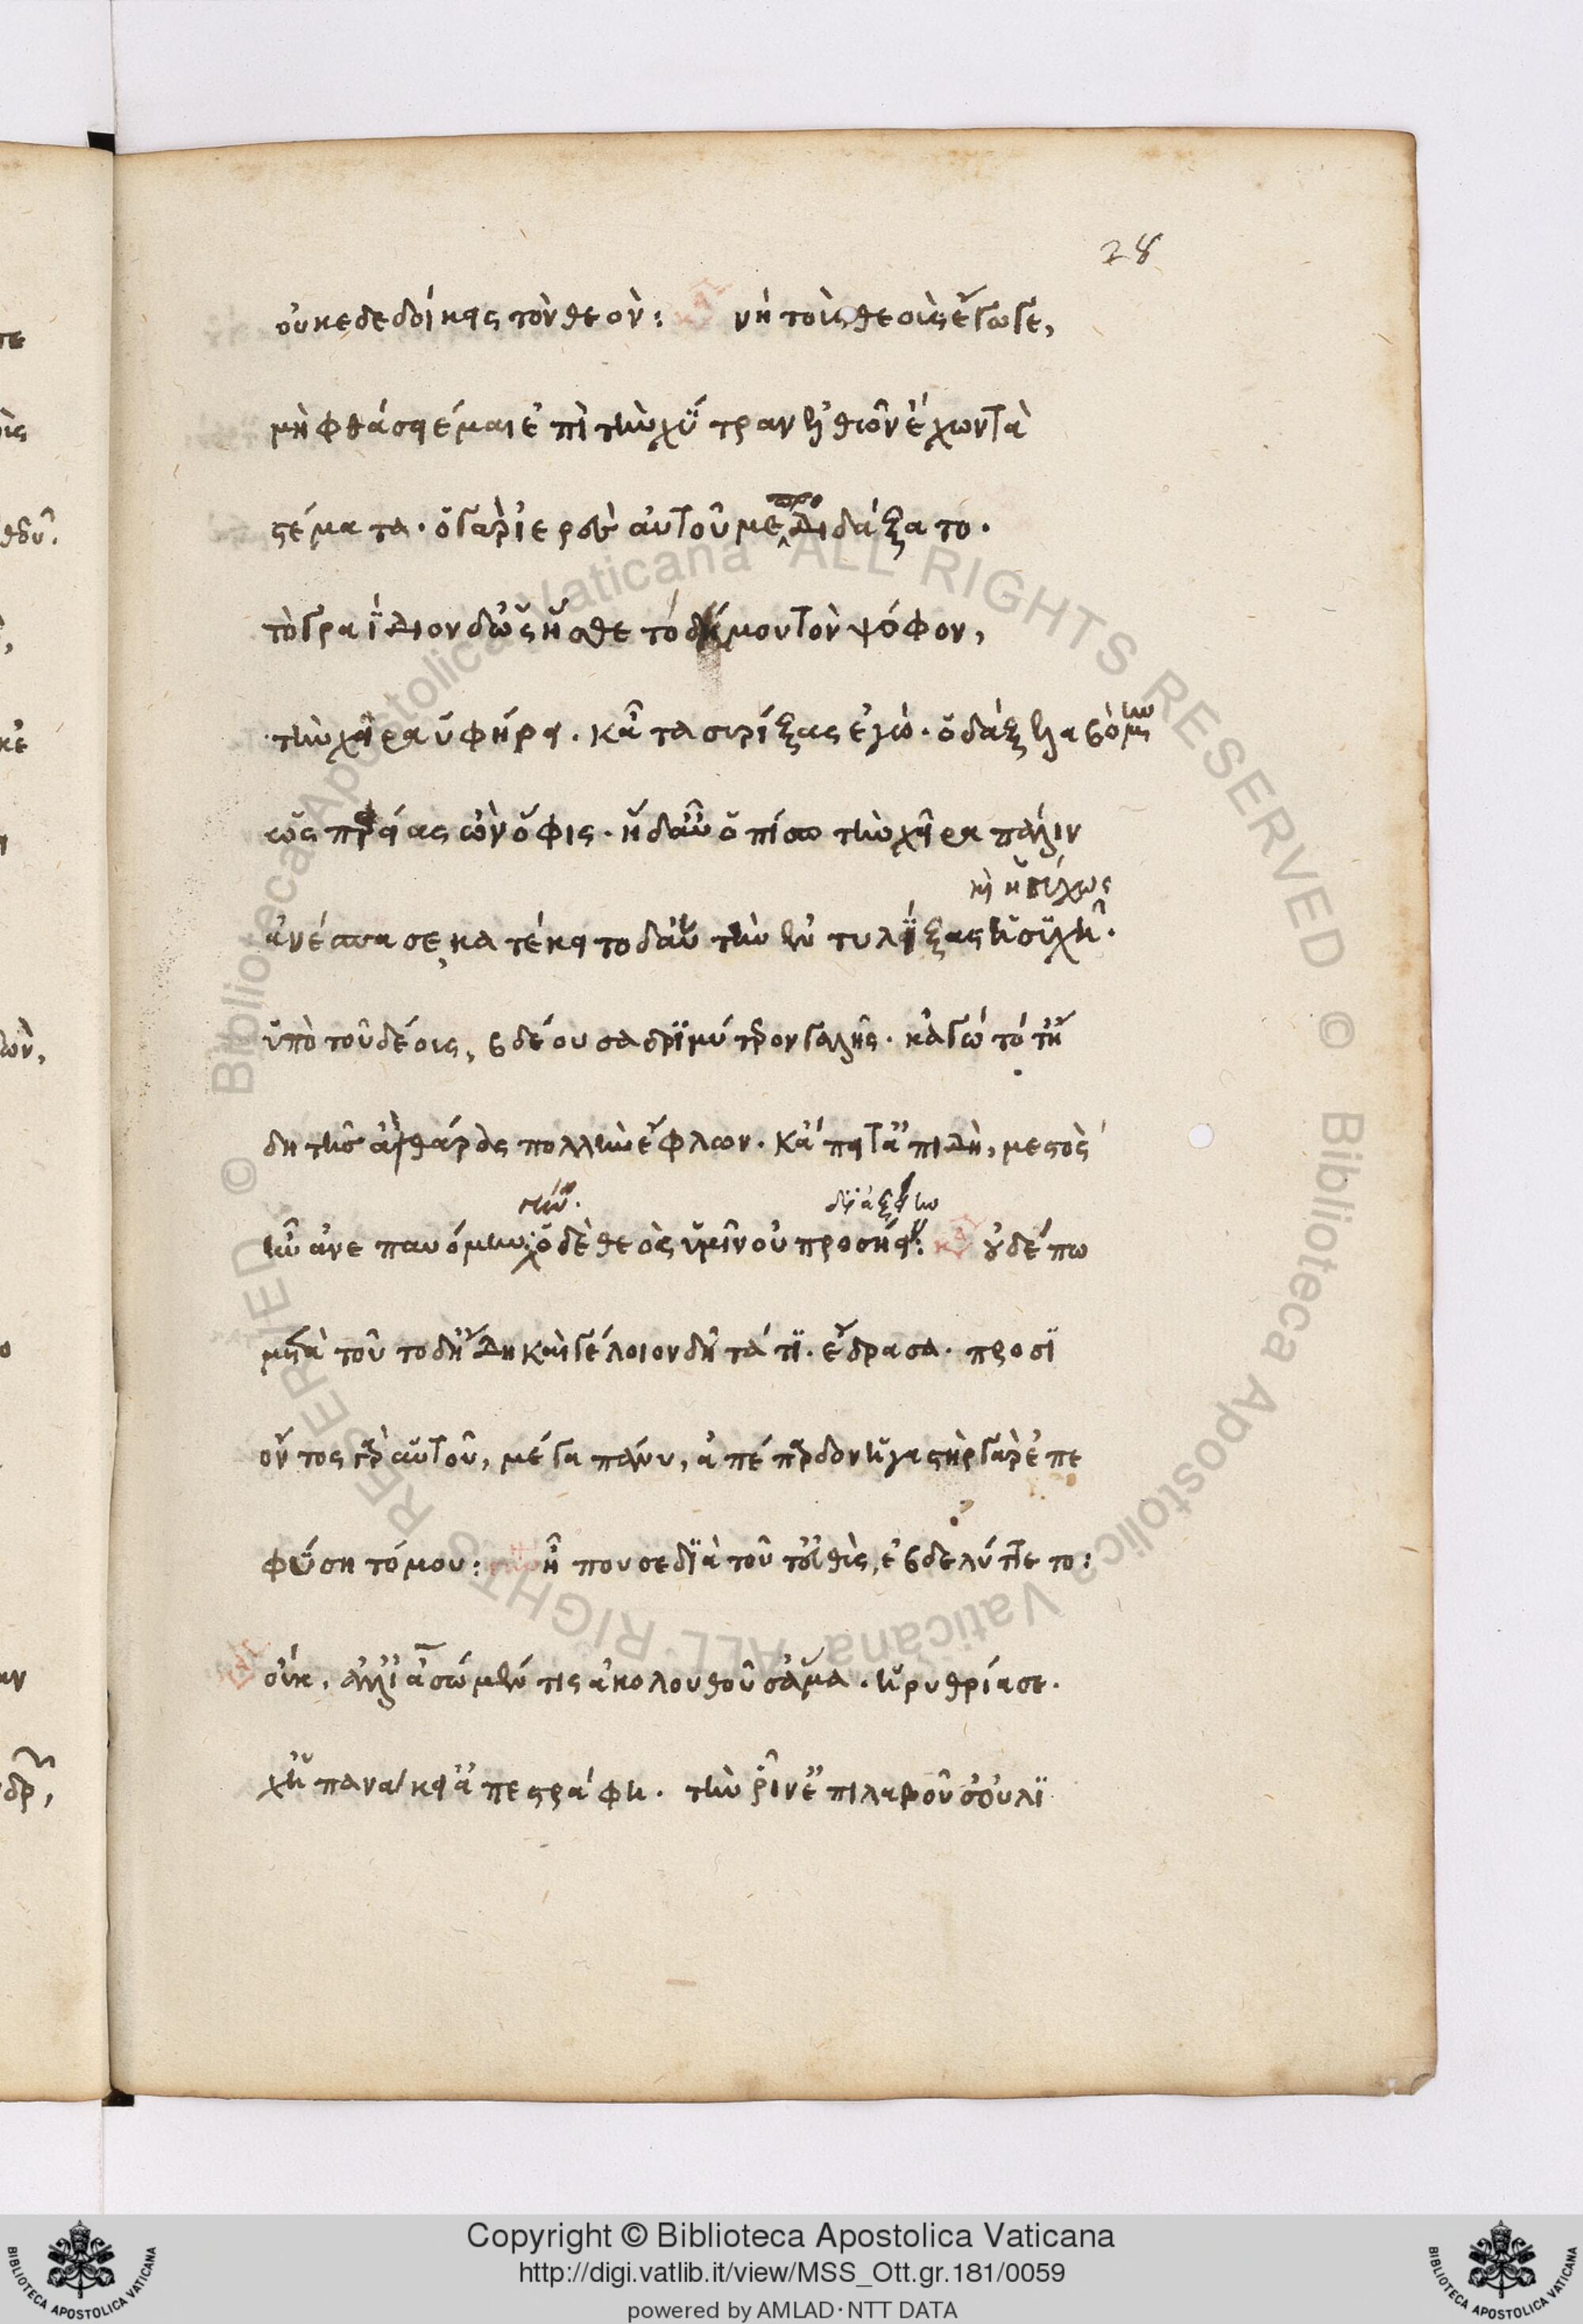 28
οὐκ ἐδεδοίκεις τὸν θεὸν: νὴ τοὺς θεοὺς ἔγωγε,
μὴ φθάσειέ με ἐπὶ τὴν χύτραν ἐλθὼν ἔχων τὰ
στέματα. ὁ γὰρ ἱερεὺς αὐτοῦ με προδιδάξατο.
τὸ γραΐδιον δ' ὡς ᾔσθετο δή μου τὸν ψόφον,
τὴν χεῖρα ὑφήρει. κᾆτα συρίξας ἐγὼ. ὀδὰξ ἐλαβόμην
ὡς παρείας ὢν ὄφις. ἡ δ' αὖ ὀπίσω τὴν χεῖρα πάλιν
καὶ ἡσύχως
ἀνέσπασε, κατέκειτο δ' αὖ τὴν ἐντυλίξας ἡσυχῆ.
ὑπὸ τοῦ δέους, βδέουσα δριμύτερον γαλῆς. κἀγὼ τότ' ἤ
δη τῆς ἀθάρης πολλὴν ἔφλων. κἄπειτ' ἀπιδὴ, μεστὸς
ἦν ἀνεπαυόμην: ὁ δὲ θεὸς ὑμῖν οὐ προσῄει: οὐδέπω
μετὰ τοῦτο δ' ἤδη καὶ γέλοιον δῆτά τι. ἔδρασα. προσι
όντος γὰρ αὐτοῦ, μέγα πάνυ, ἀπέπαρδον ἡ γαστὴρ γὰρ ἐπε
φύσητό μου: ἦ που σε διὰ τοῦτ' εὐθὺς, ἐβδελύττετο:
οὔκ, ἀλλ' ἰασὼ μέν τις ἀκολουθοῦσ' ἅμα. ἠρυθρίασε.
χ' ἡ πανάκει' ἀπεστράφη. τὴν ῥῖν' ἐπιλαβοῦσ' οὐ λι
Copyright © Biblioteca Apostolica Vaticana
http://digi.vatlib.it/view/MSS_Ott.gr.181/0059
powered by AMLAD·NTT DATA
BIBLIOTECA APOSTOLICA VATICANA
BIBLIOTECA APOSTOLICA VATICANA
© Biblioteca Apostolica Vaticana ALL RIGHTS RESERVED © Biblioteca Apostolica Vaticana ALL RIGHTS RESERVED